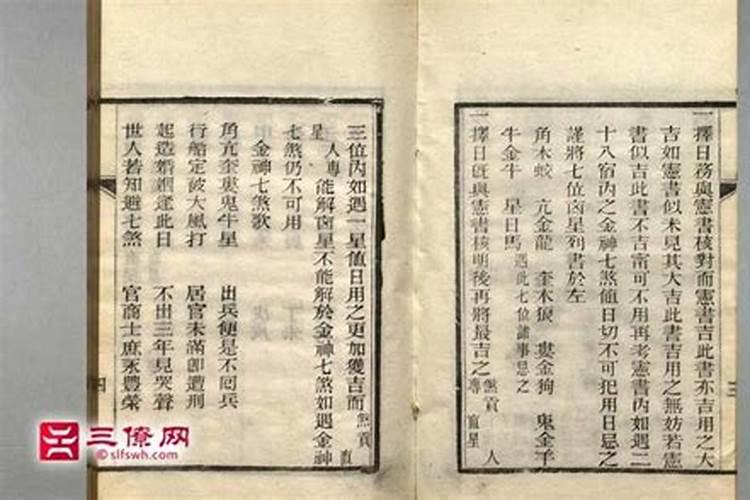 一擇日務與憲書核對而憲書吉此書亦吉用之大
吉如憲書似未見其大吉此書吉用之無妨若憲
書似吉此書不吉甯可不用再考憲書內如遇二
十八宿內之金神七煞值日切不可犯用日忌之
謹將七位凶星列書於左
角木蛟 亢金龍 奎木狼 婁金狗 鬼金羊
牛金牛 星日馬 遇此七位諸事忌之
一擇日旣與憲書核明後再將最吉之 煞貢 直星 人專
三位內如遇一星值日用之更加獲吉而 煞貢 直
星 人專 能解凶星不能解於金神七煞如遇金神
七煞仍不可用
金神七煞歌
角亢奎婁鬼牛星 出兵便是不囘兵
行船定被大風打 居官未滿卽遭刑
起造婚姻逢此日 不出三年見哭聲
世人若知避七煞 官商士庶永豐榮
四
三僚网
©slfswh.com